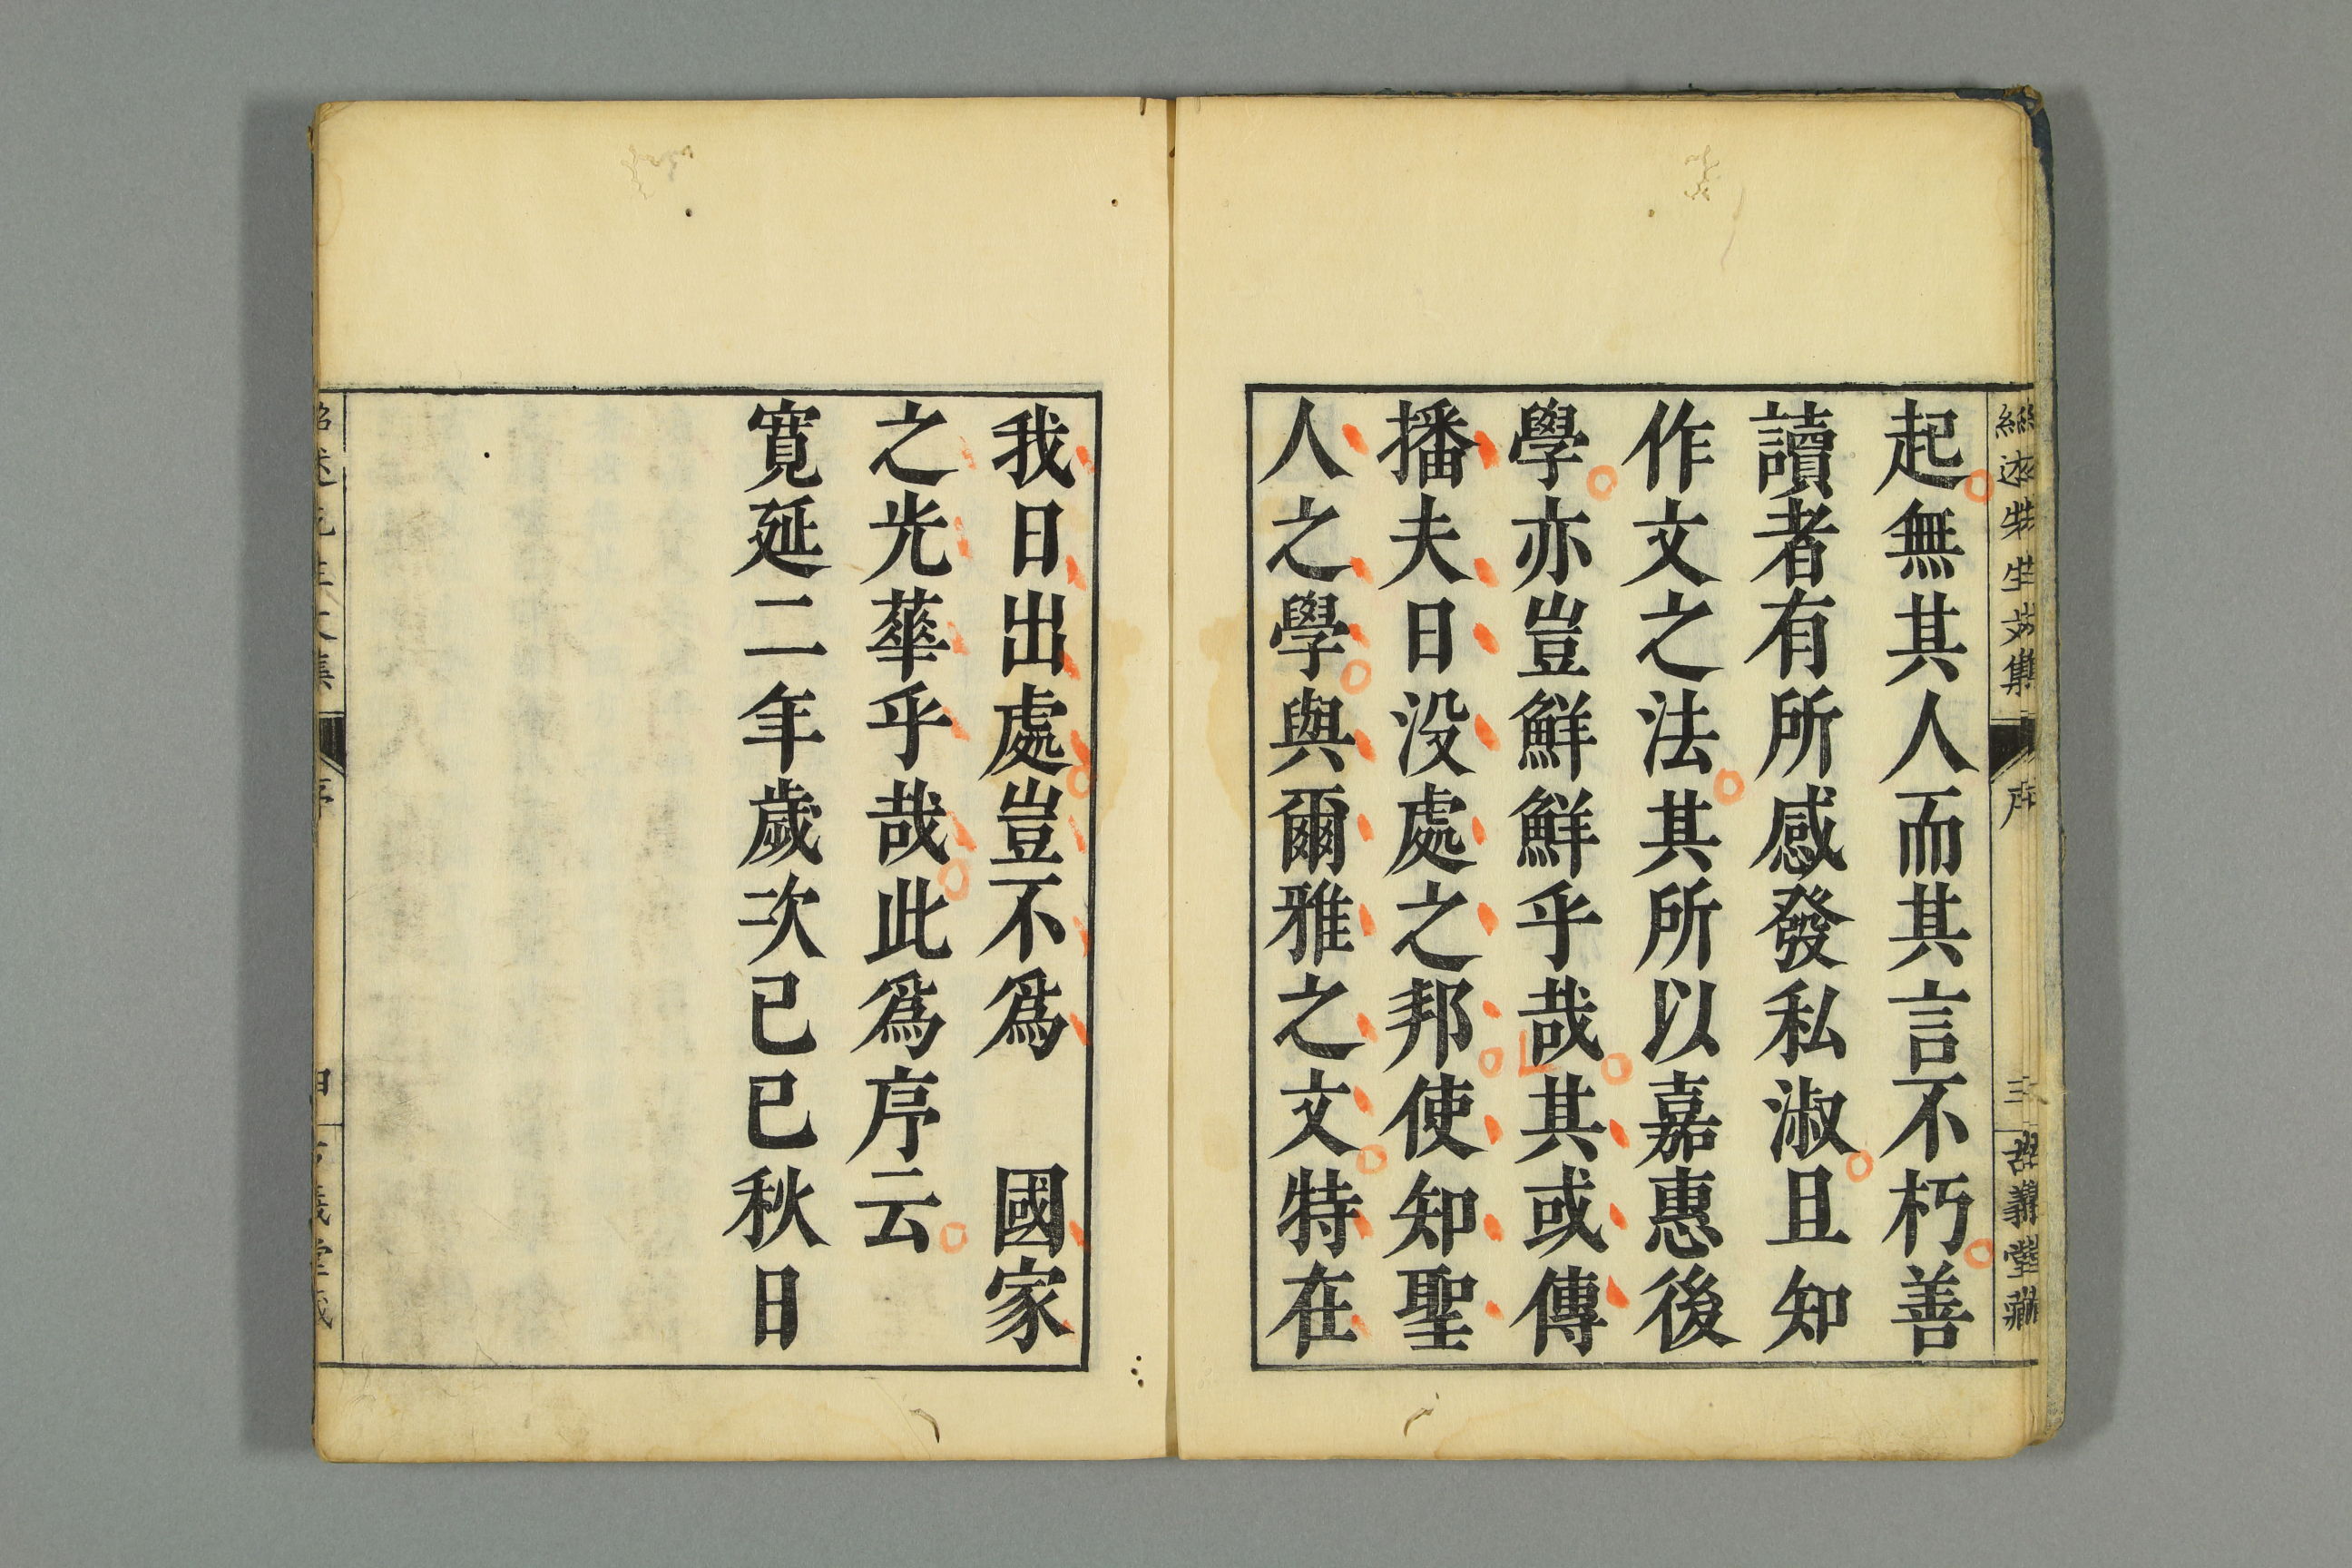 紹述先生文集
序
三
古義堂藏
起無其人而其言不朽善
讀者有所感發私淑且知
作文之法其所以嘉惠後
學亦豈鮮鮮乎哉其或傳
播夫日没處之邦使知聖
人之學與爾雅之文特在
我日出處豈不爲　國家
之光華乎哉此爲序云
寛延二年歲次己巳秋日
紹述先生文集
序
四
古義堂藏